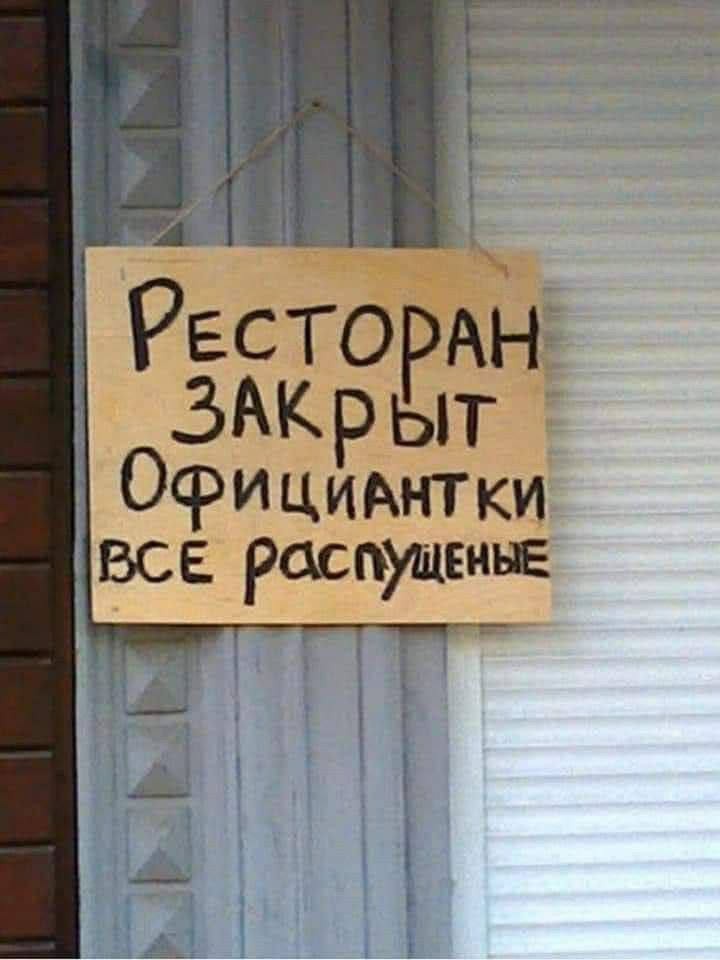 Ресторан
закрыт
Официантки
все распущеные